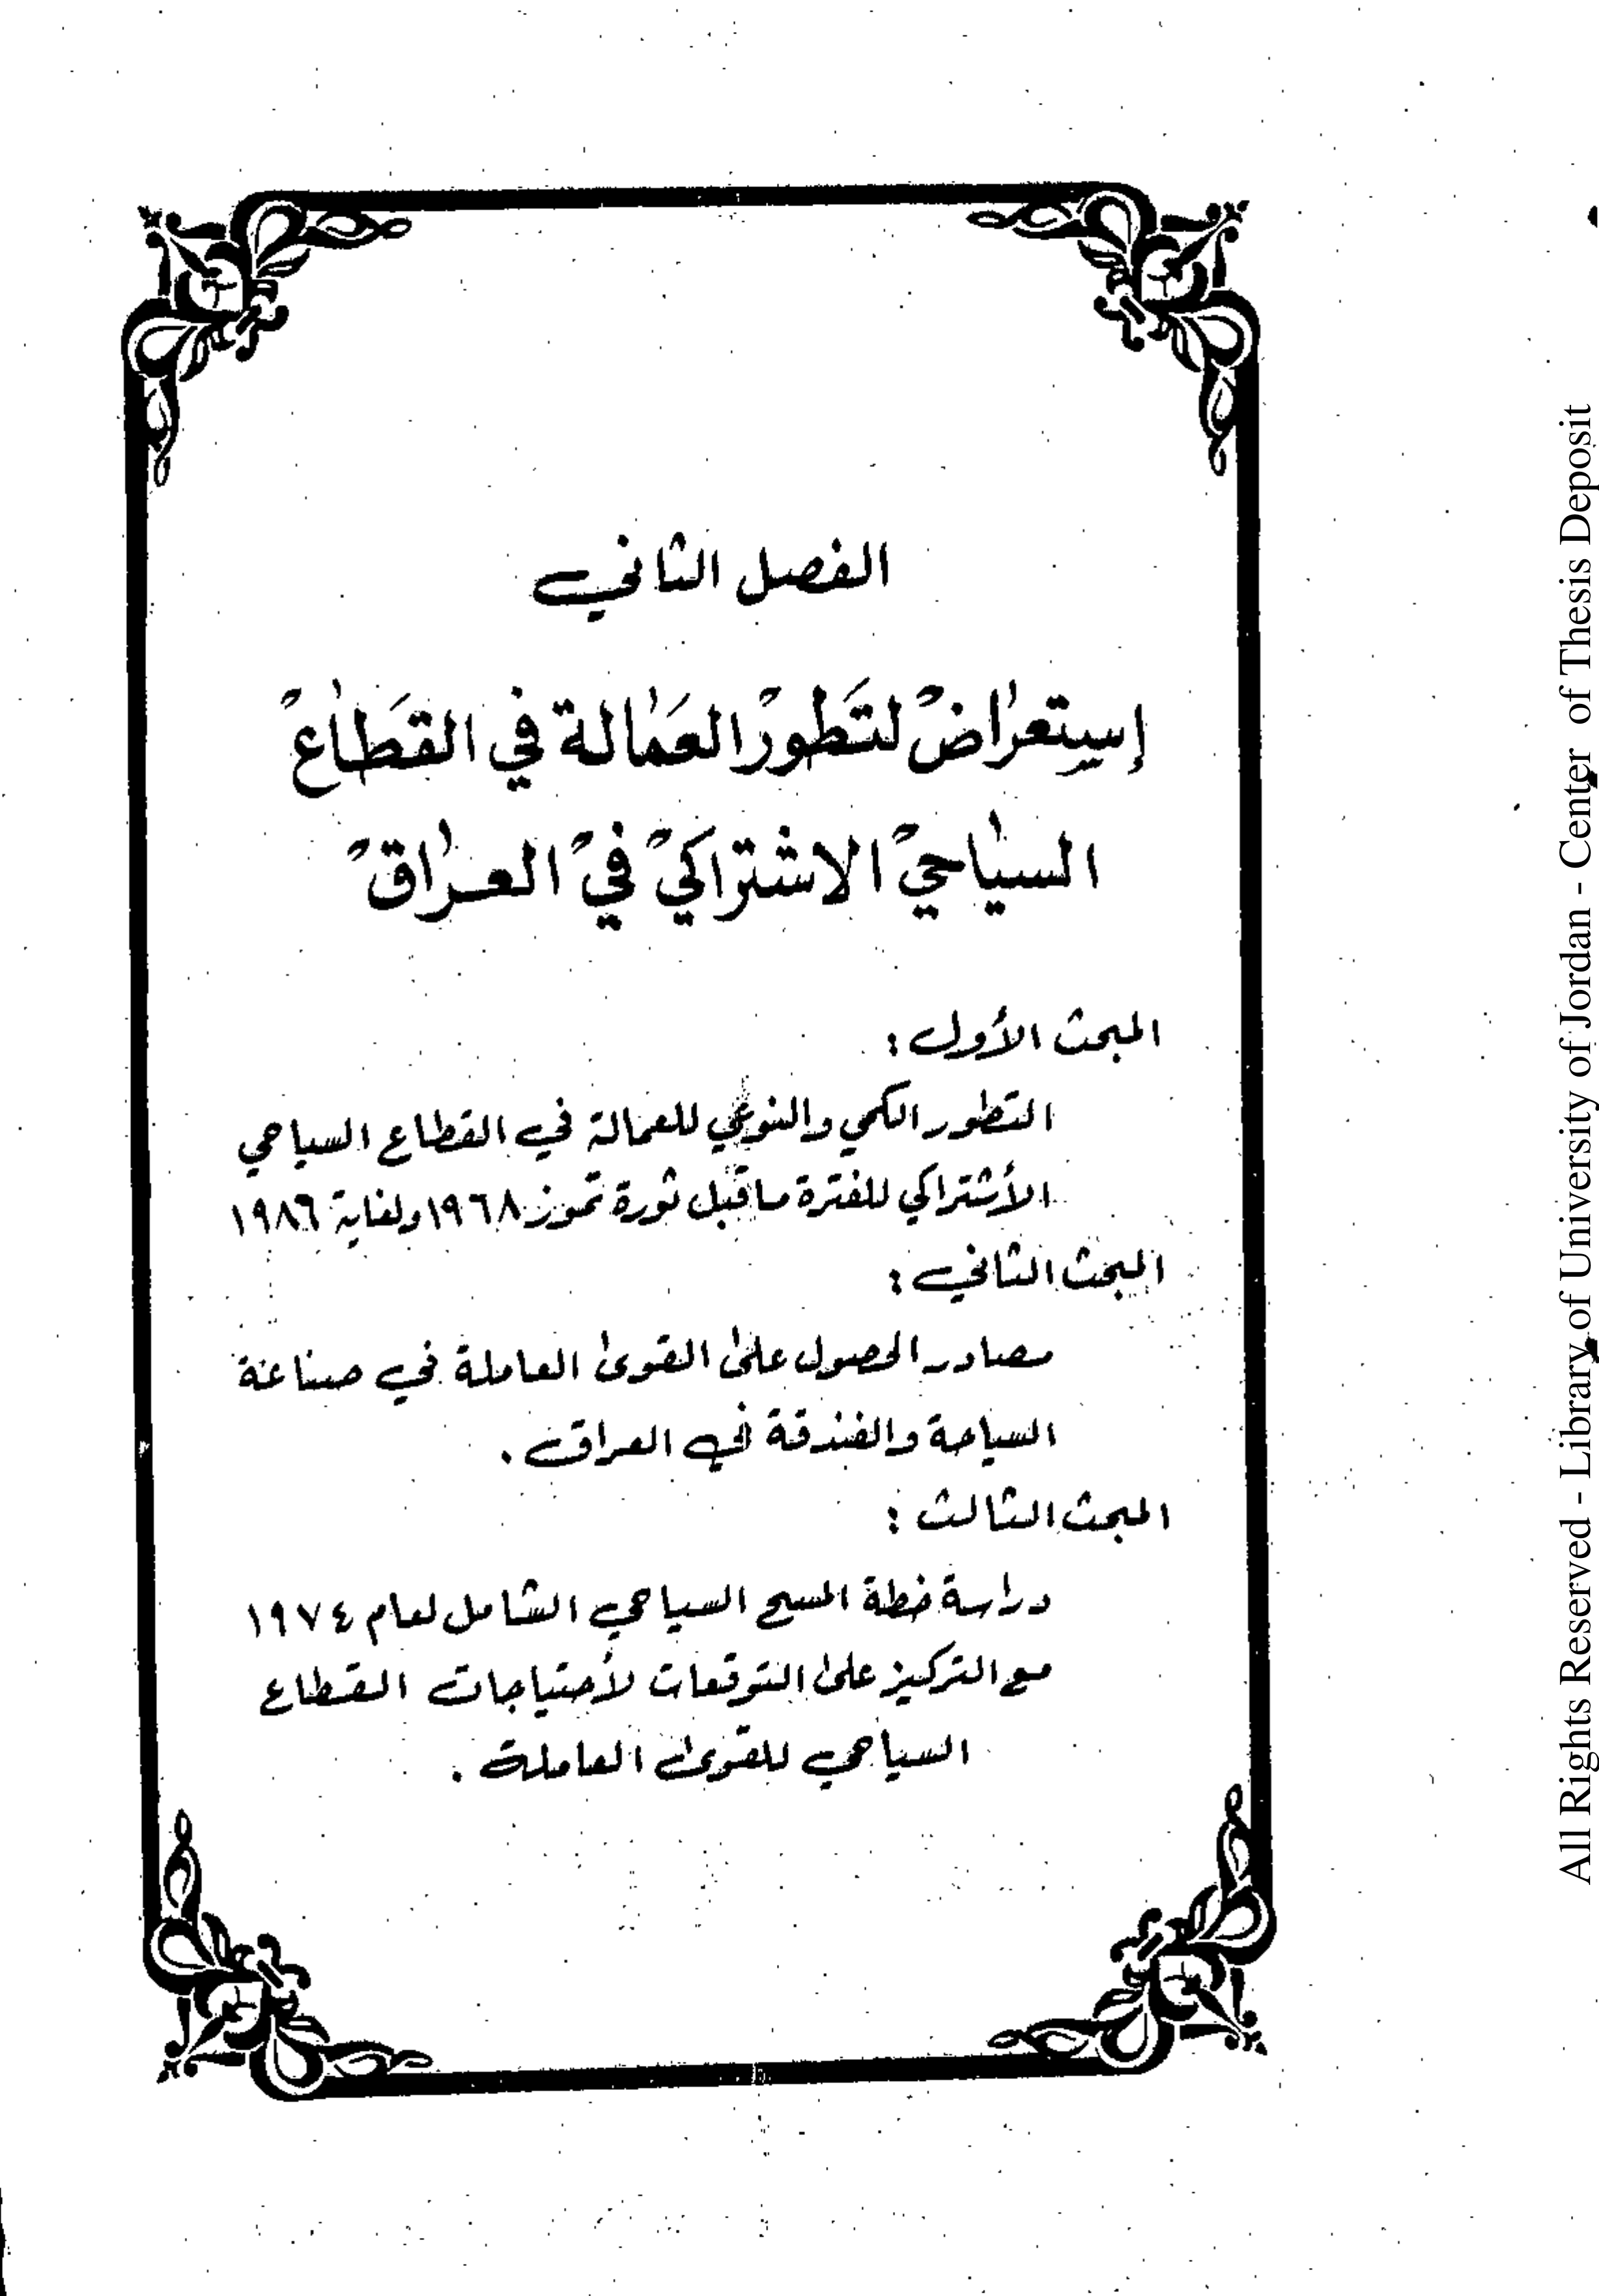 الفصل الثاني
إستعراض لتطور العمالة في القطاع
السياحي الاشتراكي في العراق
المبحث الأول :
التطور الكمي والنوعي للعمالة في القطاع السياحي
الأشتراكي للفترة ماقبل ثورة تموز ١٩٦٨ ولغاية ١٩٨٦
المبحث الثاني :
مصادر الحصول على القوى العاملة في صناعة
السياحة والفندقة في العراق .
المبحث الثالث :
دراسة خطة المسح السياحي الشامل لعام ١٩٧٤
مع التركيز على التوقعات لأحتياجات القطاع
السياحي للقوى العاملة .
All Rights Reserved - Library of University of Jordan - Center of Thesis Deposit